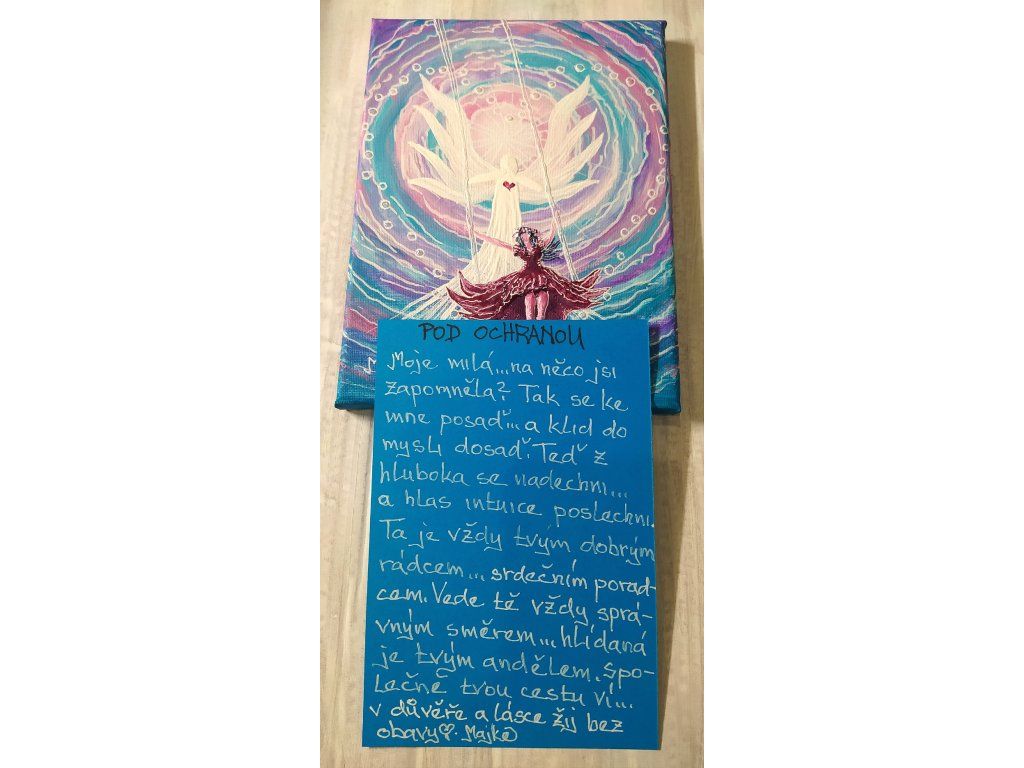 POD OCHRANOU
Moje milá...na něco jsi
zapomněla? Tak se ke
mne posaď...a klid do
mysli dosaď. Teď z
hluboka se nadechni...
a hlas intuice poslechni.
Ta je vždy tvým dobrým
rádcem... srdečním porad-
cem. Vede tě vždy sprá-
vným směrem... hlídaná
je tvým andělem. Spo-
lečně tvou cestu ví...
v důvěře a lásce žij bez
obavy♡. Majka